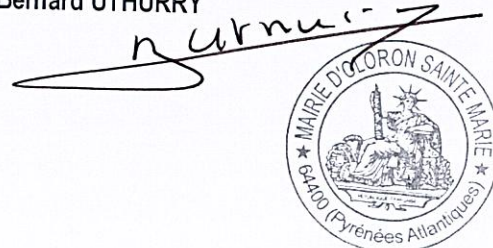 Bernard UTHURRY
MAIRIE D'OLORON SAINTE MARIE
64400 (Pyrénées Atlantiques)